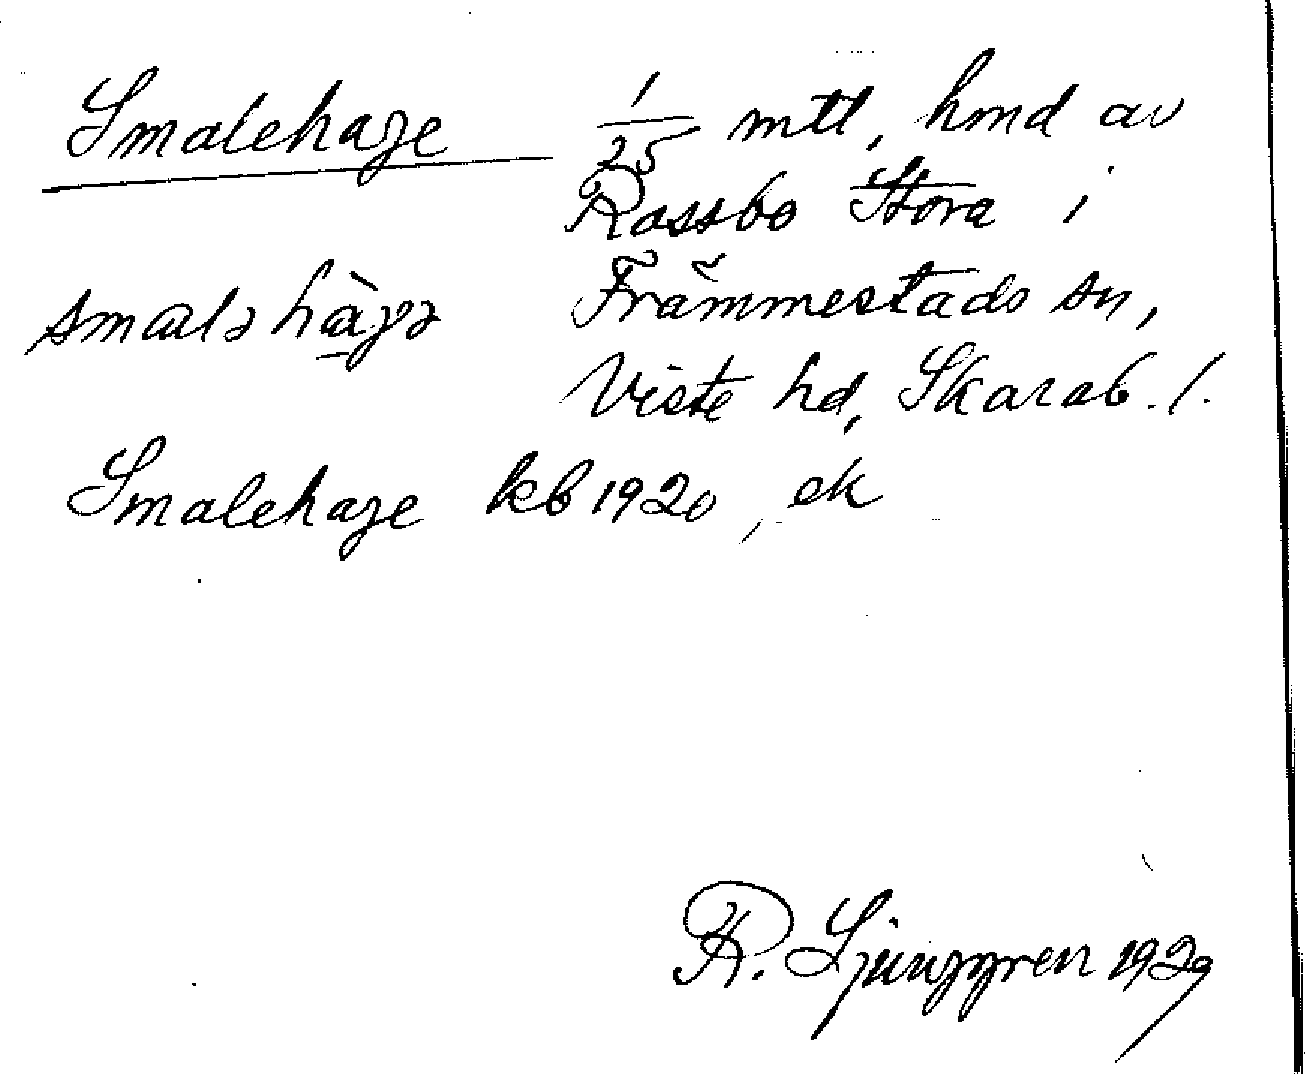 Smalehage 1/25 mtl, hmd av
Rassbo Stora i
smaləhàgə Främmestads sn,
Viste hd, Skarab. l.
Smalehage kb 1920, ek
R. Ljunggren 1929